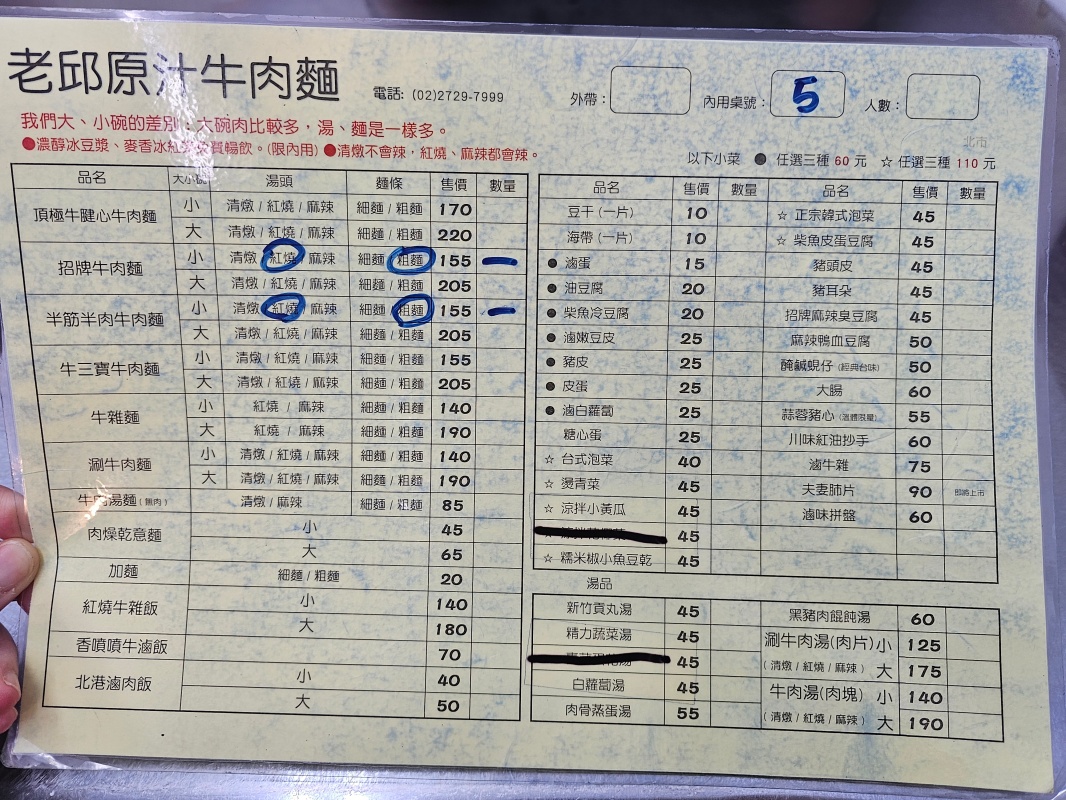 老邱原汁牛肉麵
電話: (02)2729-7999
外帶:
內用桌號: 5
人數:
北市
我們大、小碗的差別:大碗肉比較多,湯、麵是一樣多。
●濃醇冰豆漿、麥香冰紅茶免費暢飲。(限內用) ●清燉不會辣,紅燒、麻辣都會辣。
以下小菜 ● 任選三種 60 元 ☆ 任選三種 110 元
品名 大小碗 湯頭 麵條 售價 數量
頂極牛腱心牛肉麵 小 清燉 / 紅燒 / 麻辣 細麵 / 粗麵 170
大 清燉 / 紅燒 / 麻辣 細麵 / 粗麵 220
招牌牛肉麵 小 清燉 / 紅燒 / 麻辣 細麵 / 粗麵 155 一
大 清燉 / 紅燒 / 麻辣 細麵 / 粗麵 205
半筋半肉牛肉麵 小 清燉 / 紅燒 / 麻辣 細麵 / 粗麵 155 一
大 清燉 / 紅燒 / 麻辣 細麵 / 粗麵 205
牛三寶牛肉麵 小 清燉 / 紅燒 / 麻辣 細麵 / 粗麵 155
大 清燉 / 紅燒 / 麻辣 細麵 / 粗麵 205
牛雜麵 小 紅燒 / 麻辣 細麵 / 粗麵 140
大 紅燒 / 麻辣 細麵 / 粗麵 190
涮牛肉麵 小 清燉 / 紅燒 / 麻辣 細麵 / 粗麵 140
大 清燉 / 紅燒 / 麻辣 細麵 / 粗麵 190
牛肉湯麵 (無肉) 清燉 / 麻辣 細麵 / 粗麵 85
肉燥乾意麵 小 45
大 65
加麵 細麵 / 粗麵 20
紅燒牛雜飯 小 140
大 180
香噴噴牛滷飯 70
北港滷肉飯 小 40
大 50
品名 售價 數量 品名 售價 數量
豆干 (一片) 10 ☆ 正宗韓式泡菜 45
海帶 (一片) 10 ☆ 柴魚皮蛋豆腐 45
● 滷蛋 15 豬頭皮 45
● 油豆腐 20 豬耳朵 45
● 柴魚冷豆腐 20 招牌麻辣臭豆腐 45
● 滷嫩豆皮 25 麻辣鴨血豆腐 50
● 豬皮 25 醃鹹蜆仔 (經典台味) 50
● 皮蛋 25 大腸 60
● 滷白蘿蔔 25 蒜蓉豬心 (溫體限量) 55
糖心蛋 25 川味紅油抄手 60
☆ 台式泡菜 40 滷牛雜 75
☆ 燙青菜 45 夫妻肺片 90 即將上市
☆ 涼拌小黃瓜 45 滷味拼盤 60
45
☆ 糯米椒小魚豆乾 45
湯品
新竹貢丸湯 45 黑豬肉餛飩湯 60
精力蔬菜湯 45 涮牛肉湯(肉片) 小 125
45 (清燉 / 紅燒 / 麻辣) 大 175
白蘿蔔湯 45 牛肉湯(肉塊) 小 140
肉骨蒸蛋湯 55 (清燉 / 紅燒 / 麻辣) 大 190